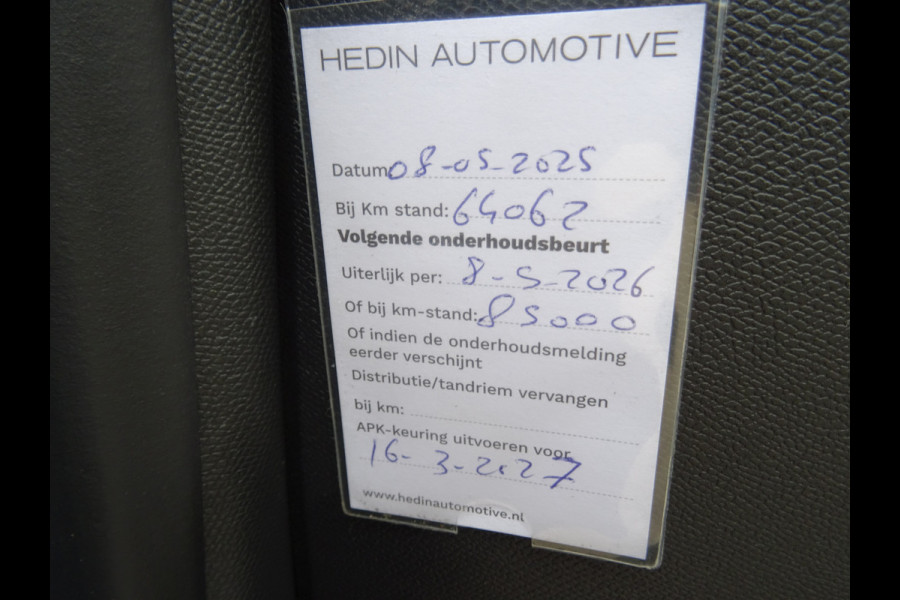 HEDIN AUTOMOTIVE
Datum 08-05-2025
Bij Km stand: 64062
Volgende onderhoudsbeurt
Uiterlijk per: 8-5-2026
Of bij km-stand: 85000
Of indien de onderhoudsmelding
eerder verschijnt
Distributie/tandriem vervangen
bij km:
APK-keuring uitvoeren voor
16-3-2027
www.hedinautomotive.nl